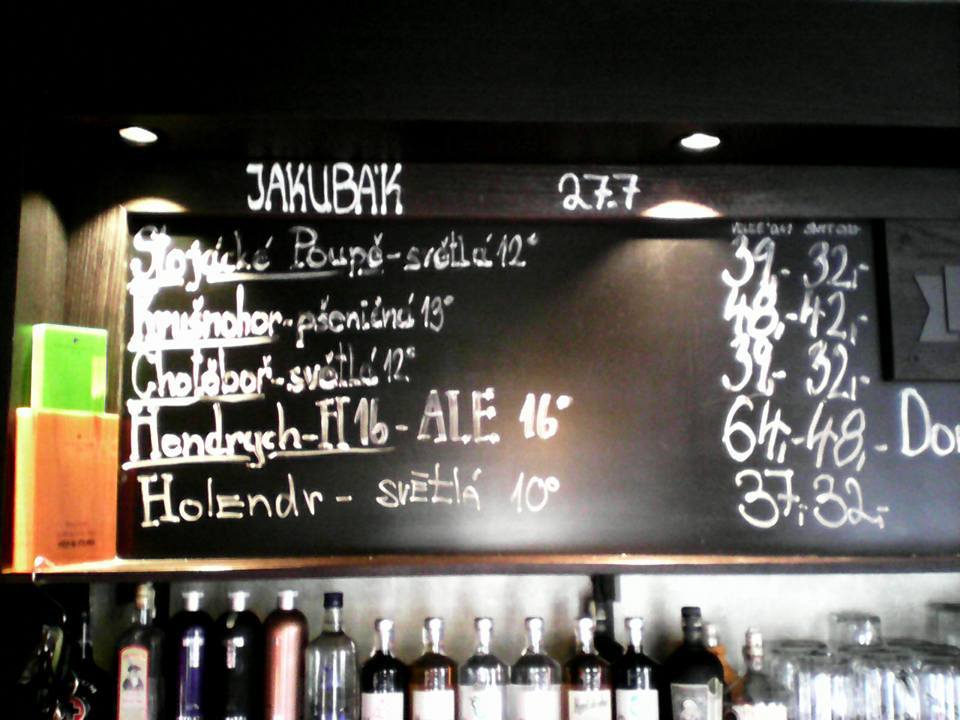 JAKUBÁK 27.7
Poupě - světlá 12° 39,- 32,-
Krušnohor - pšeničná 13° 48,- 42,-
Chotěboř - světlá 12° 39,- 32,-
Hendrych - H16 - ALE 16° 64,- 48,- Don
Holendr - SVĚTLÁ 10° 37,- 32,-